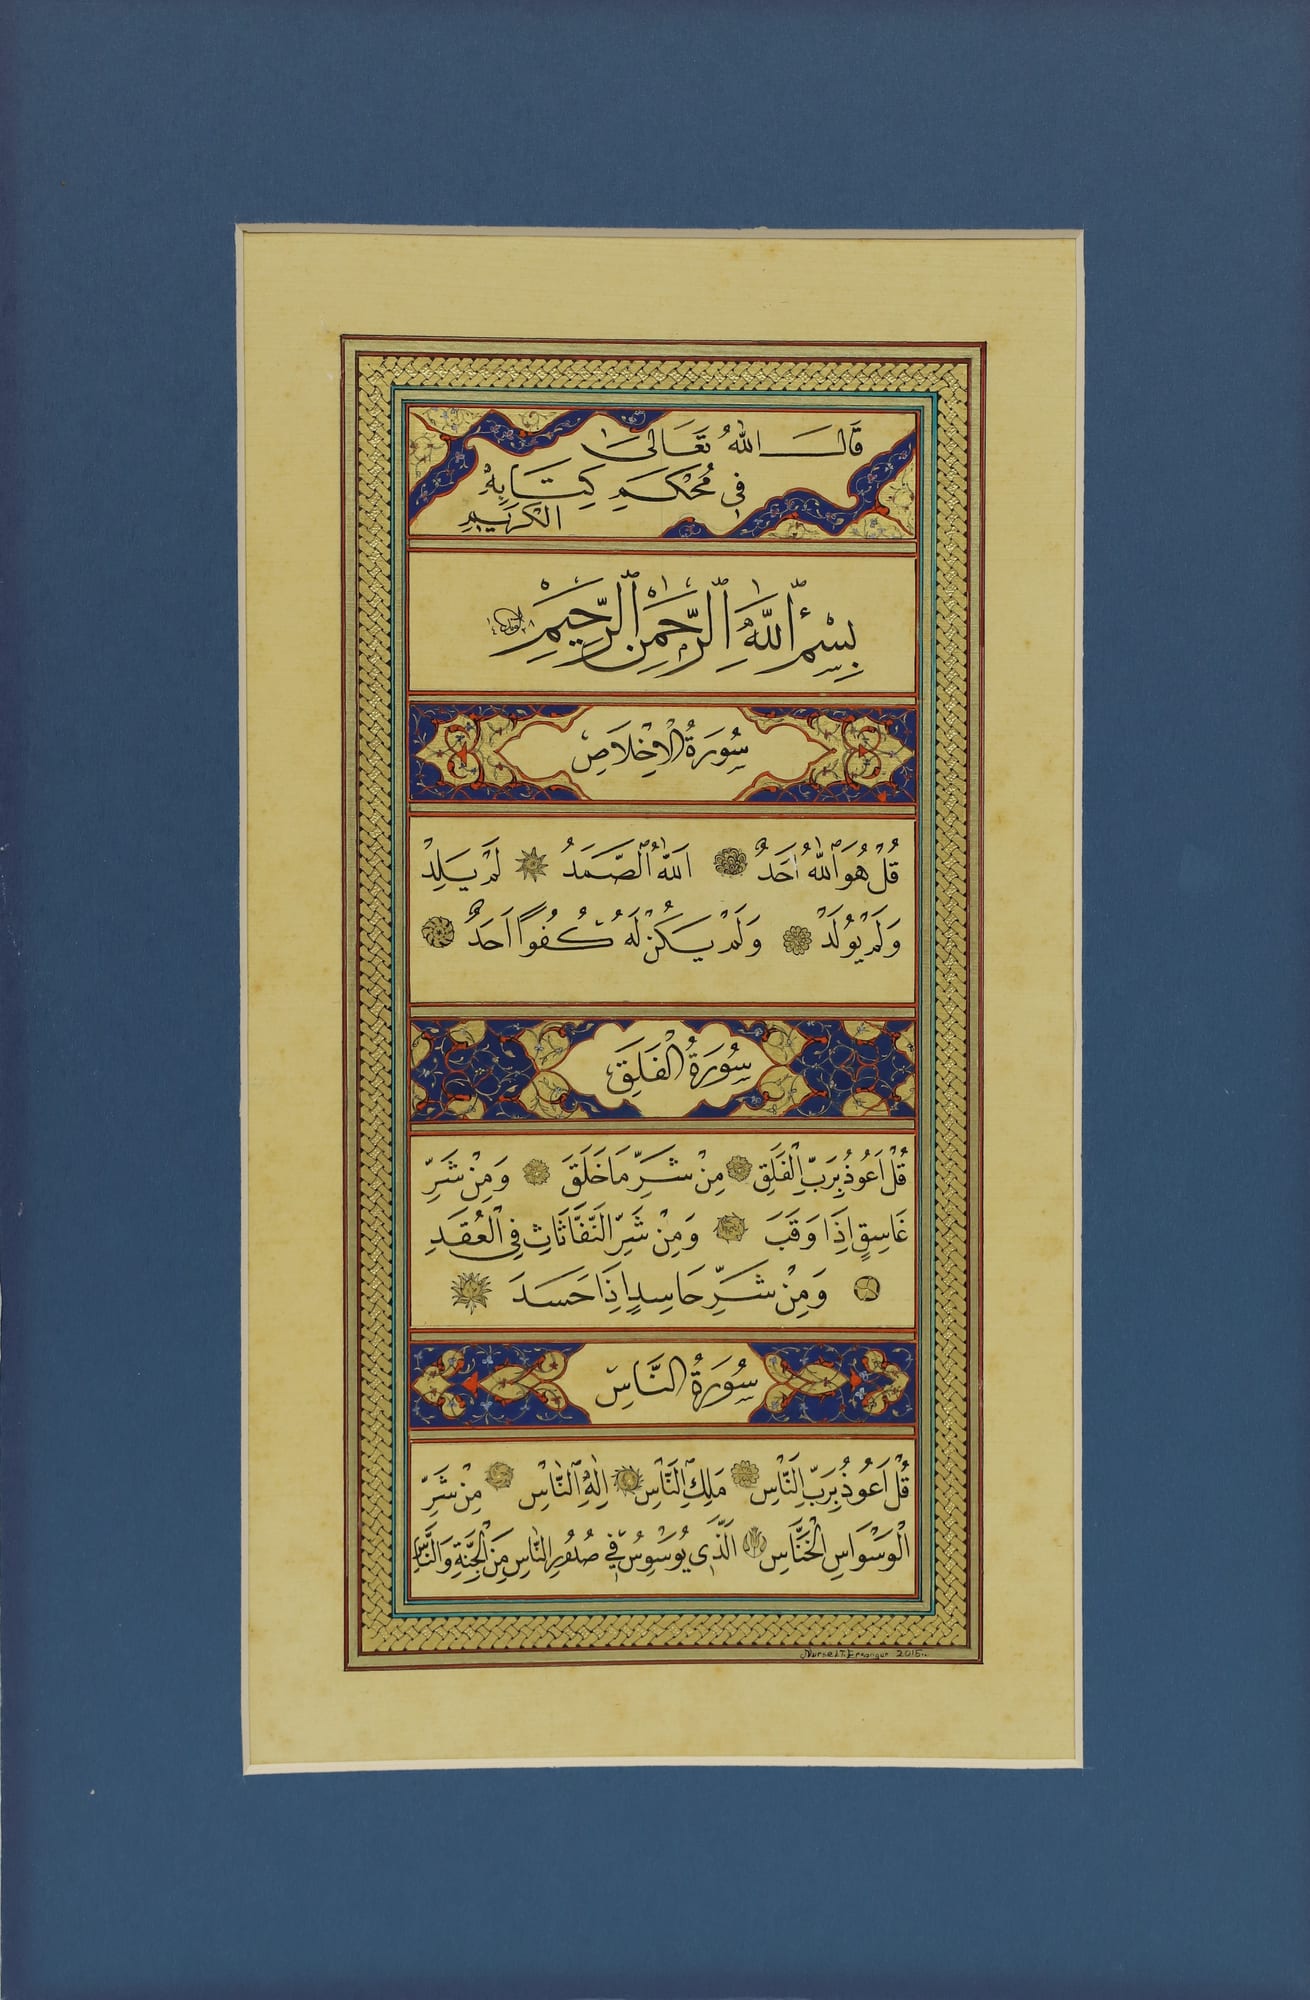 قَالَ اللّٰهُ تَعَالٰى
فِى مُحْكَمِ كِتَابِهِ
الْكَرِيمِ
بِسْمِ اللّٰهِ الرَّحْمٰنِ الرَّحِيمِ
سُورَةُ الْاِخْلَاصِ
قُلْ هُوَ اللّٰهُ اَحَدٌ اَللّٰهُ الصَّمَدُ لَمْ يَلِدْ
وَلَمْ يُولَدْ وَلَمْ يَكُنْ لَهُ كُفُوًا اَحَدٌ
سُورَةُ الْفَلَقِ
قُلْ اَعُوذُ بِرَبِّ الْفَلَقِ مِنْ شَرِّ مَا خَلَقَ وَمِنْ شَرِّ
غَاسِقٍ اِذَا وَقَبَ وَمِنْ شَرِّ النَّفَّاثَاتِ فِى الْعُقَدِ
وَمِنْ شَرِّ حَاسِدٍ اِذَا حَسَدَ
سُورَةُ النَّاسِ
قُلْ اَعُوذُ بِرَبِّ النَّاسِ مَلِكِ النَّاسِ اِلٰهِ النَّاسِ مِنْ شَرِّ
الْوَسْوَاسِ الْخَنَّاسِ اَلَّذِى يُوَسْوِسُ فِى صُدُورِ النَّاسِ مِنَ الْجِنَّةِ وَالنَّاسِ
2015